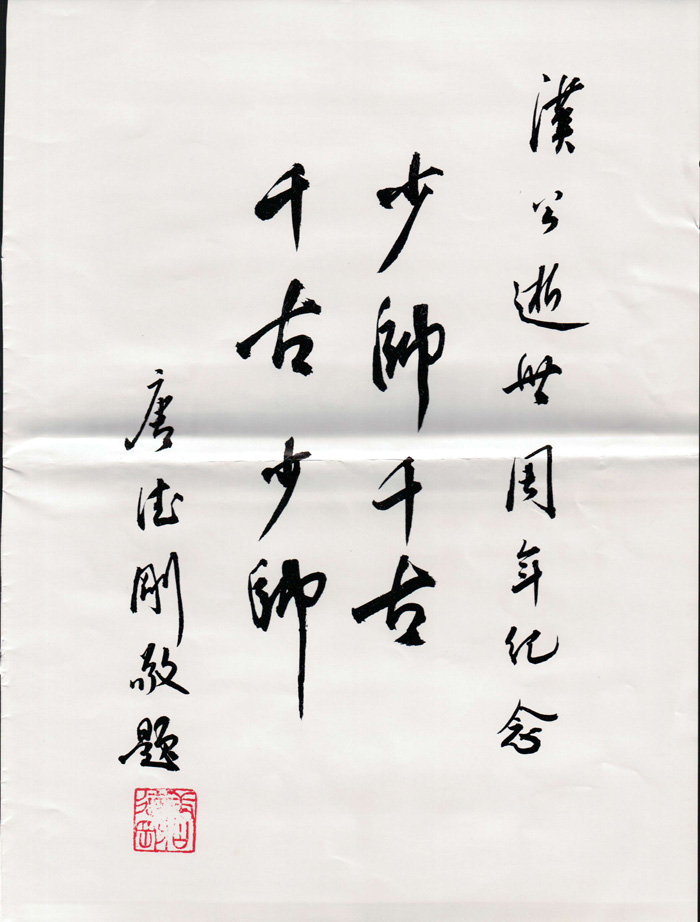 漢公逝世周年纪念
少帥千古
千古少帥
唐德剛敬題